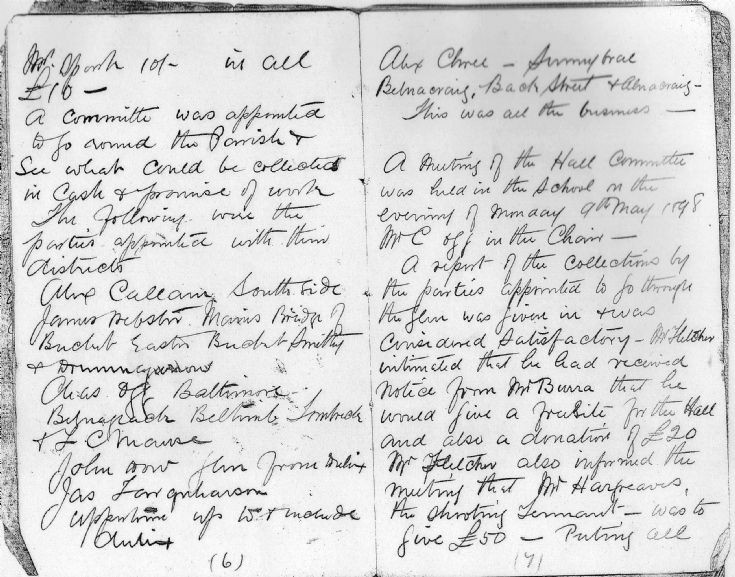 Mr. Spark 10/- in all
£16 —
A committe was appointed
to go round the Parrish &
See what could be collected
in Cash & promise of work
The following were the
parties appointed with their
districts
Alex Callam South side
James Webster Mains Bridge of
Buchat Easter Buchat Smithy
&
Chas Ogg Baltimore
Belnapach Beltimb
& F C Manse
John Dow Glen from
Jas Farquharson
up to & include

(6)
Alex Chree — Sunnybrae
Belnacraig, Back Street & Alnacraig —
This was all the business —
A Meeting of the Hall Committee
was held in the School on the
evening of Monday 9th May 1898
Mr C Ogg in the Chair —
A report of the collections by
the parties appointed to go through
the glen was given in & was
Considered Satisfactory — Mr Fletcher
intimated that he had received
notice from Mr Burra that he
would give a free Site for the Hall
and also a donation of £20
Mr Fletcher also informed the
meeting that Mr Hargreaves,
the shooting Tennant — was to
give £50 — Puting all
(7)